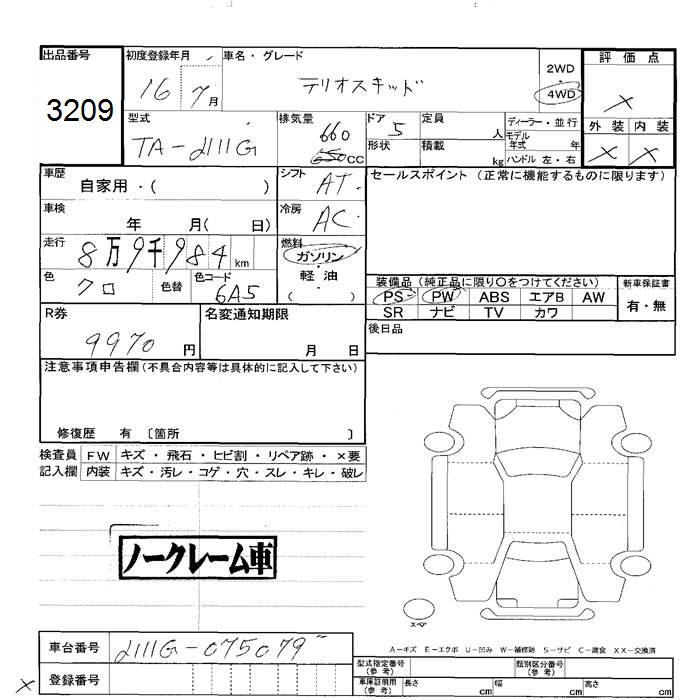 出品番号 初度登録年月 車名・グレード 評価点
3209 16 7月 テリオスキッド 2WD・4WD ×
型式 排気量 ドア 定員 ディーラー・並行 外装 内装
TA-J111G 660 650CC 5 人 モデル年式 年 × ×
形状 積載 kg ハンドル 左・右
車歴 シフト セールスポイント (正常に機能するものに限ります)
自家用・( ) AT
車検 冷房
年 月( 日) AC
走行 燃料
8万9千984km ガソリン・軽油
色 色替 色コード ( )
クロ 6A5
装備品 (純正品に限り○をつけてください) 新車保証書
PS PW ABS エアB AW 有・無
SR ナビ TV カワ
R券 名変通知期限 後日品
9970円 月 日
注意事項申告欄 (不具合内容等は具体的に記入して下さい)
修復歴 有 〔箇所 〕
検査員 FW キズ・飛石・ヒビ割・リペア跡・×要
記入欄 内装 キズ・汚レ・コゲ・穴・スレ・キレ・破レ
ノークレーム車
スペア
A-キズ E-エクボ U-凹み W-補修跡 S-サビ C-腐食 XX-交換済
車台番号 J111G-075079
登録番号
×
型式指定番号(参考) 類別区分番号(参考)
車庫証明用(参考) 長さ cm 幅 cm 高さ cm